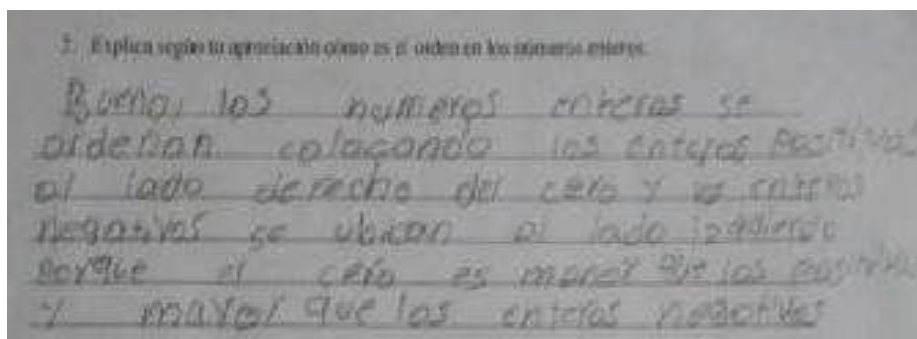 2. Explica según tu apreciación cómo es el orden en los números enteros.
Bueno, los numeros enteros se
ordenan colocando los enteros positivos
al lado derecho del cero y los enteros
negativos se ubican al lado izquierdo
porque el cero es menor que los positivos
y mayor que los enteros negativos